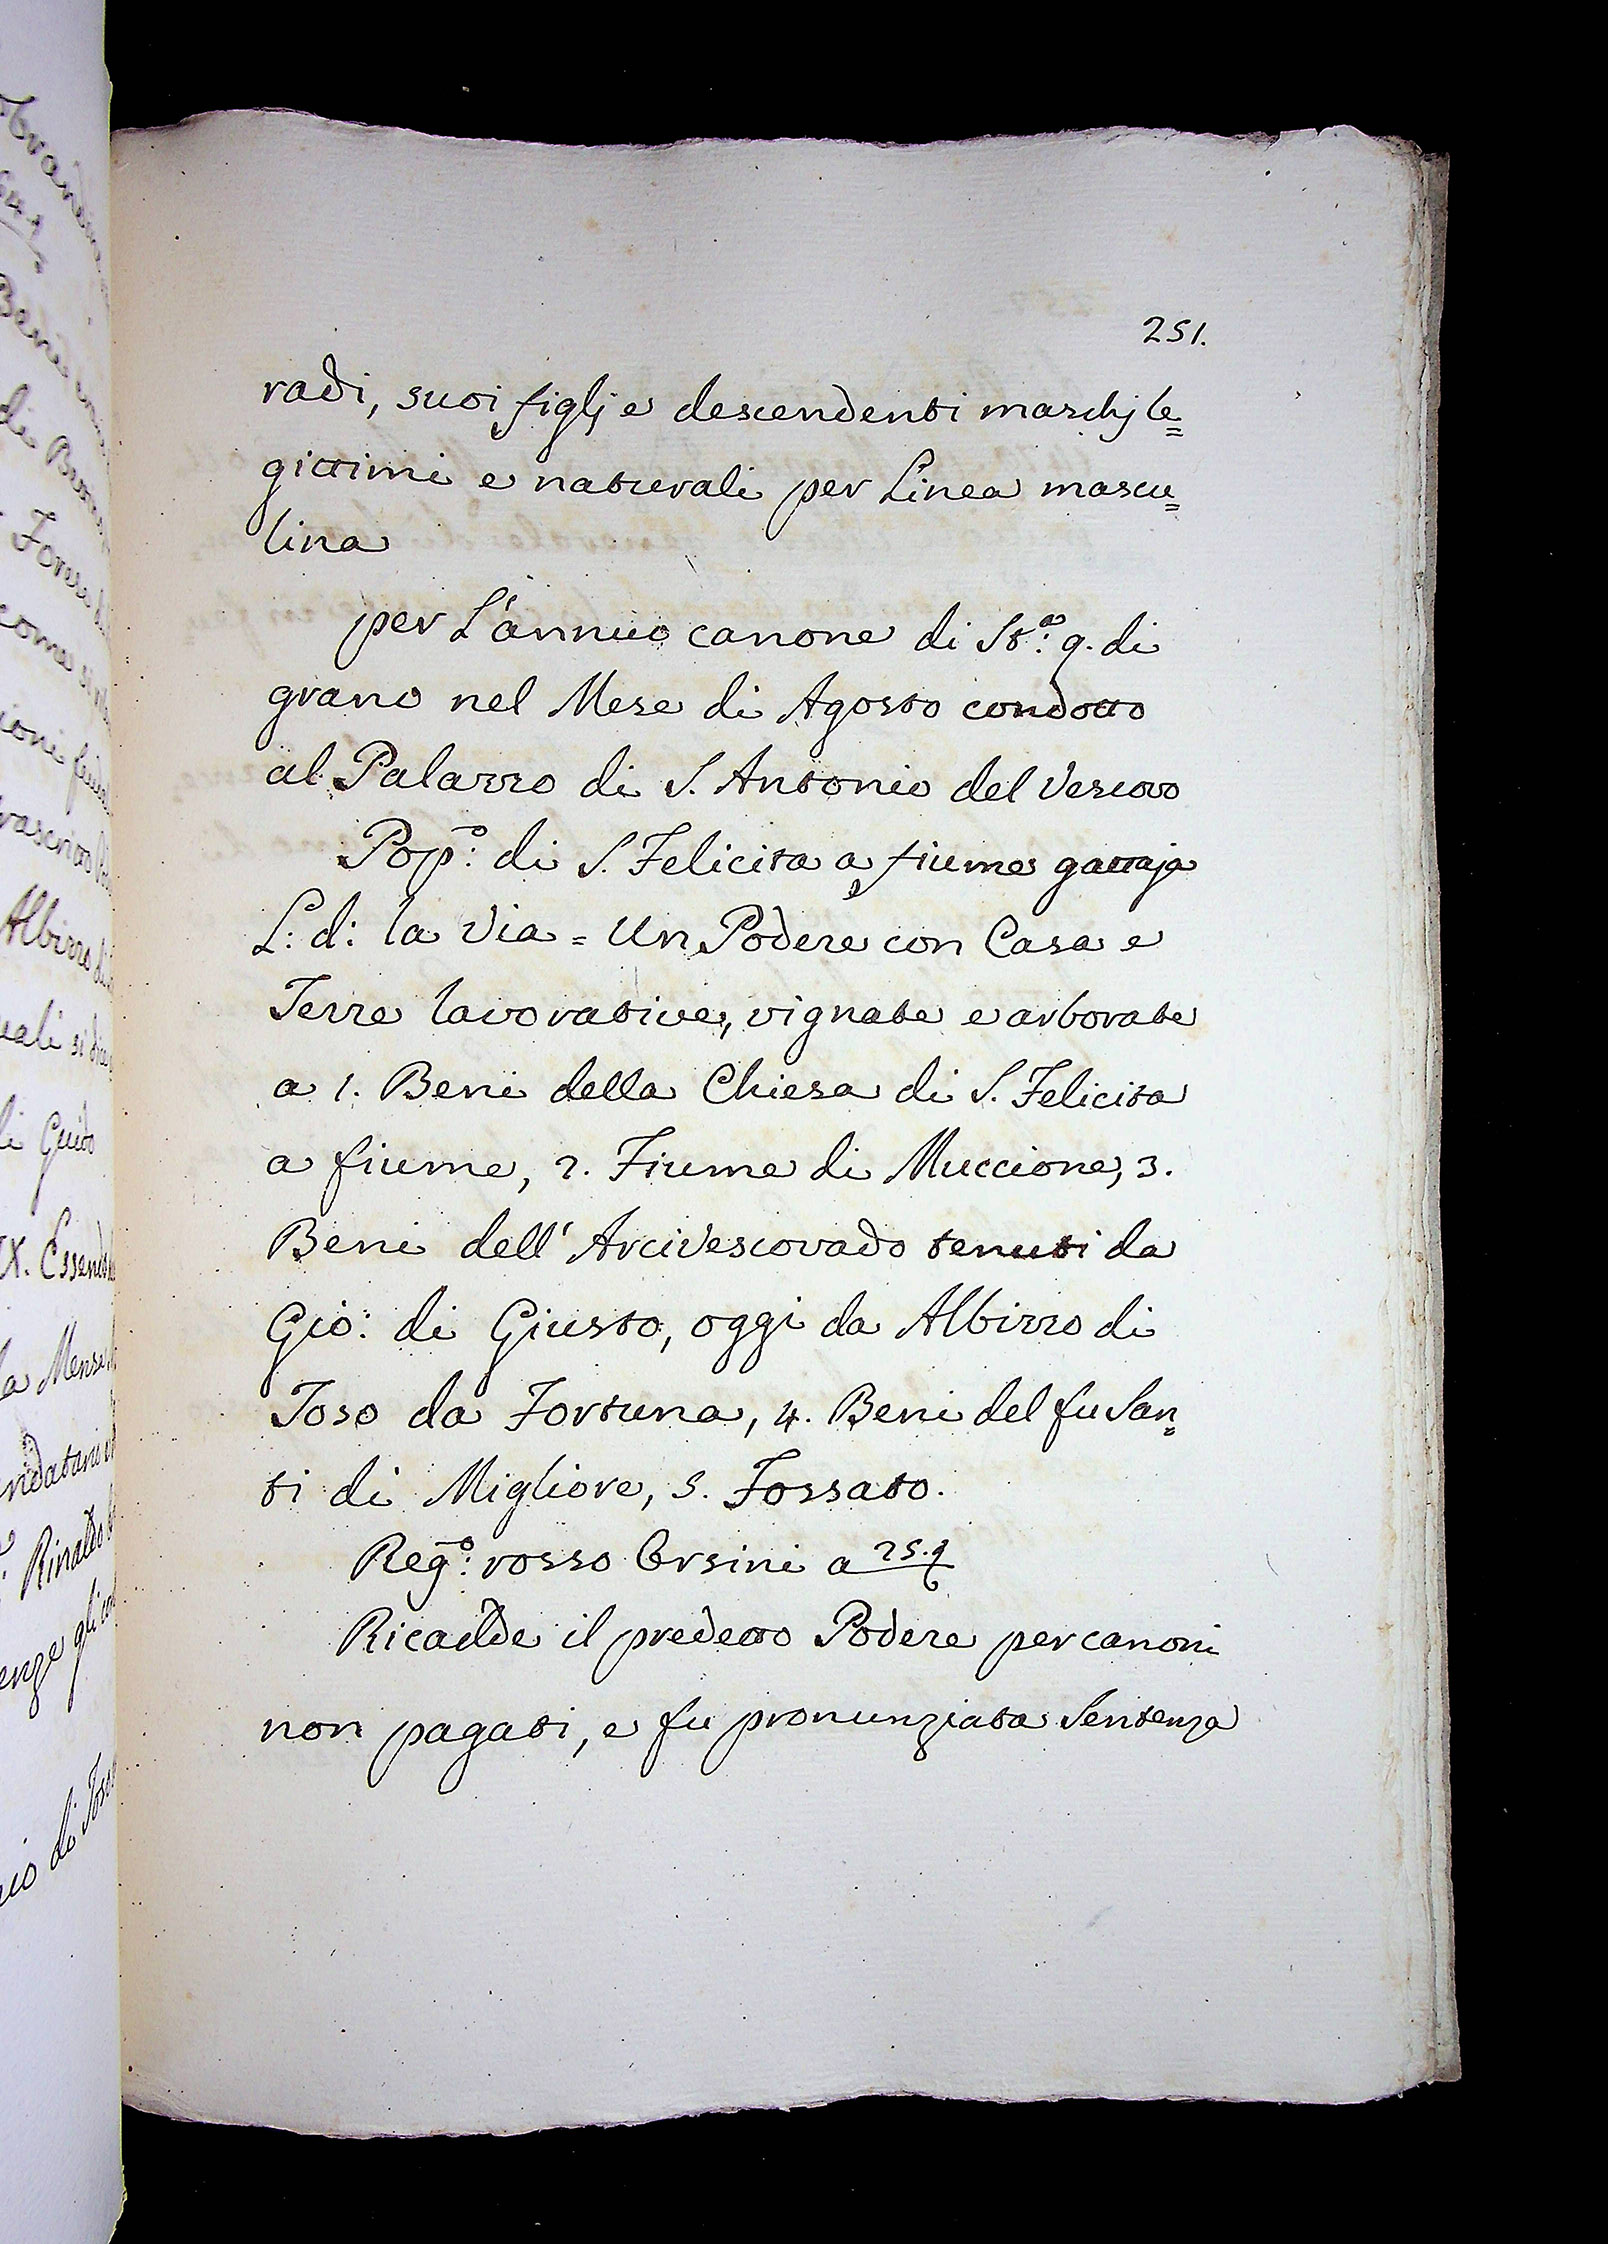 251.
radi, suoi figlj e descendenti maschj le=
gittimi e naturali per Linea mascu=
lina
per L'annuo canone di St:ª 9. di
grano nel Mese di Agosto condotto
al Palazzo di S. Antonio del Vescovo
Pop:º di S. Felicita a fiume gattaja
L: d: la Via = Un Podere con Casa e
Terre lavorative, vignate e arborate
a 1. Beni della Chiesa di S. Felicita
a fiume, 2. Fiume di Muccione, 3.
Beni dell' Arcivescovado tenuti da
Gio: di Giusto, oggi da Albizzo di
Toso da Fortuna, 4. Beni del fu San=
ti di Migliore, 5. Fossato.
Reg:º rosso Orsini a 25.
Ricadde il predetto Podere per canoni
non pagati, e fu pronunziata Sentenza